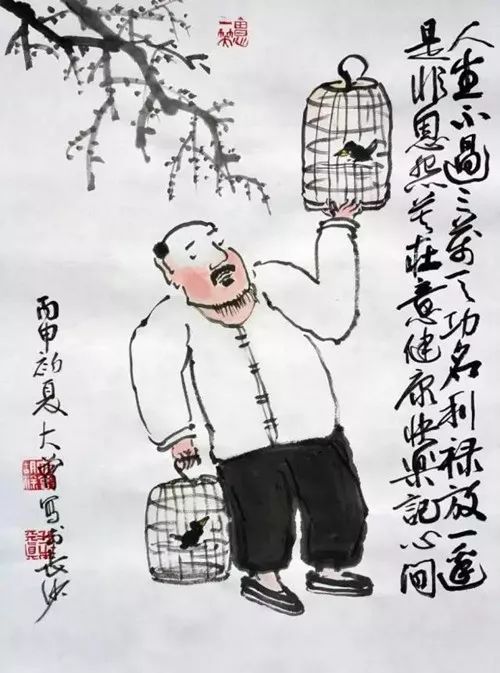 人生不過三万天功名利禄放一邊
是非恩怨莫在意健康快樂記心间
丙申初夏大曾写於長沙